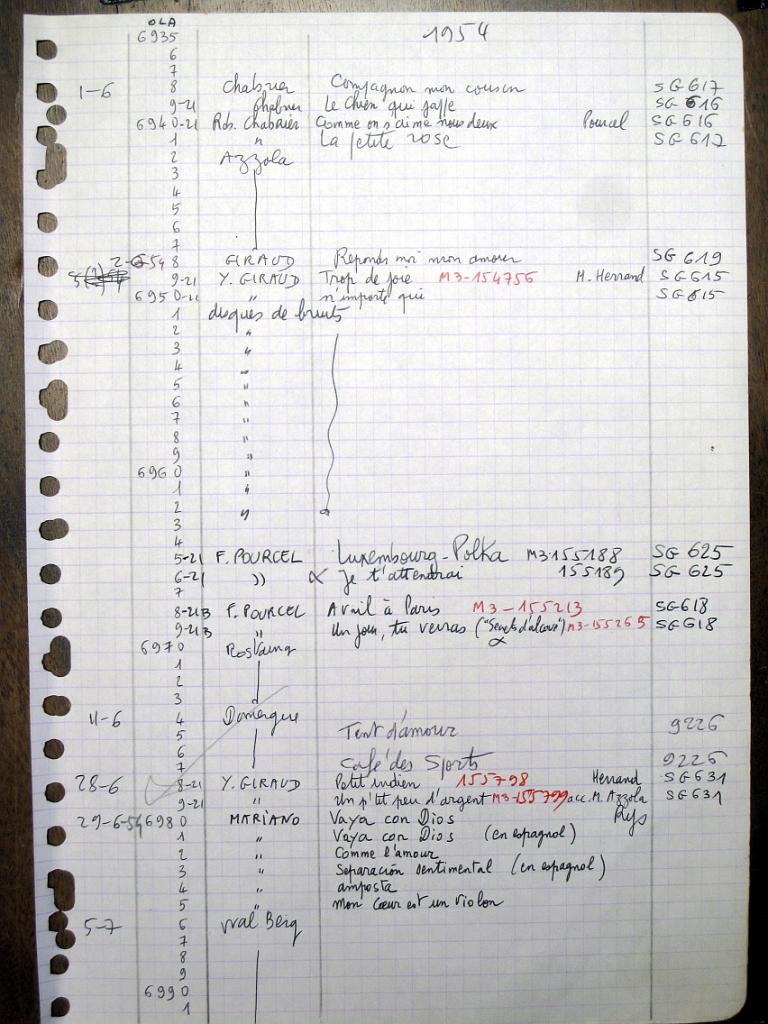 OLA
6935 1954
6
7
1-6 8 Chabrier Compagnon mon cousin SG 617
9-21 Chabrier Le Chien qui jappe SG 616
6940-21 Rob. Chabrier Comme on s'aime nous deux Pourcel SG 616
1 " La petite rose SG 617
2 Azzola
3
4
5
6
7
2-6-54 8 GIRAUD Réponds moi mon amour SG 619
9-21 Y. GIRAUD Trop de joie M3-154756 M. Herrand SG 615
6950-21 " n'importe qui SG 615
1 disques de bruits
2 "
3 "
4 "
5 "
6 "
7 "
8 "
9 "
6960 "
1 "
2 "
3
4
5-21 F. POURCEL Luxembourg-Polka M3-155188 SG 625
6-21 " Je t'attendrai 155189 SG 625
7
8-21B F. POURCEL Avril à Paris M3-155213 SG618
9-21B " Un jour, tu verras ("Secrets d'alcove") M3-155265 SG618
6970 Rostaing
1
2
3
11-6 4 Domergue
5 Tent d'amour 9226
6
7 Café des Sports 9226
28-6 8-21 Y. GIRAUD Petit indien 155798 Herrand SG 631
9-21 " Un p'tit peu d'argent M3-155799 acc. M. Azzola SG 631
29-6-54 6980 MARIANO Vaya con Dios Rys
1 " Vaya con Dios (en espagnol)
2 " Comme l'amour
3 " Separación sentimental (en espagnol)
4 " amposta
5 " mon cœur est un violon
5-7 6 Wal Berg
7
8
9
6990
1